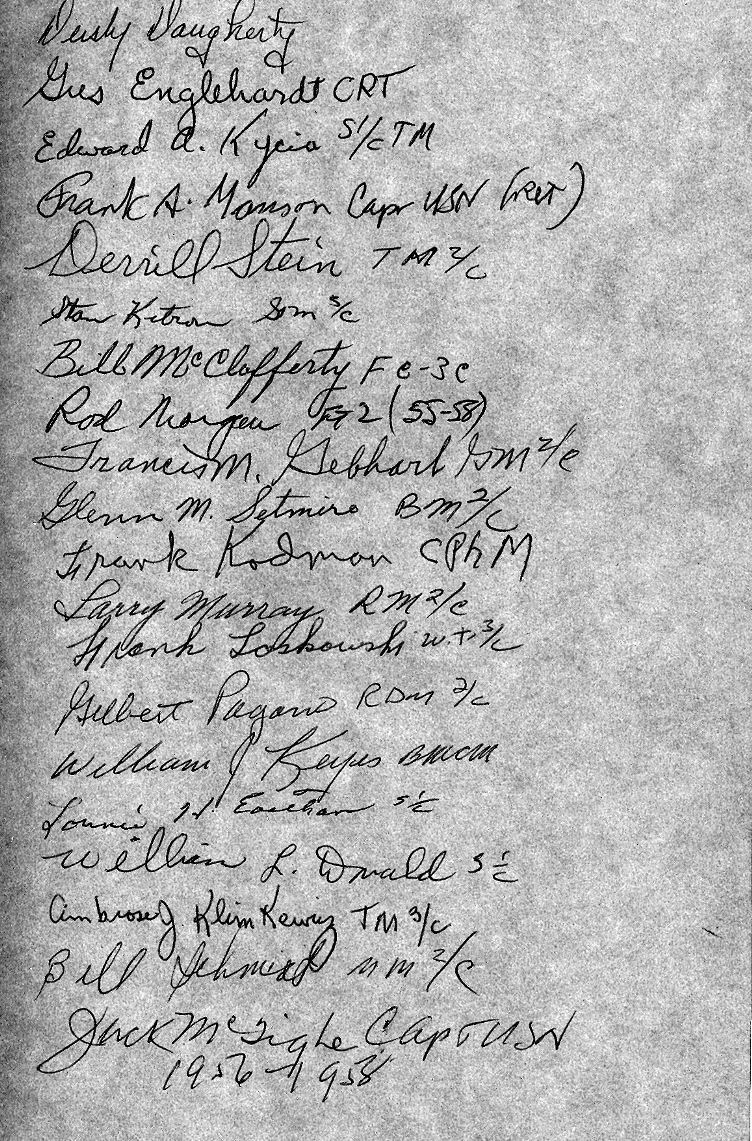 Dusty Daugherty
Gus Englehardt CRT
Edward A. Kycia S1/c TM
Frank A. Manson Capt USN (Ret)
Derrill Stein TM 2/c
Stan Ketron Gm 3/c
Bill McClafferty Fc-3c
Rod Morgan FT2 (55-58)
Francis M. Gebhart GM 2/c
Glenn M. Setmire BM 2/c
Frank Kodman CPhM
Larry Murray RM 2/c
Frank Laskowski W.T. 3/c
Gilbert Pagano RDM 2/c
William J Keyes BMCM
Lonnie H. Eastham S1/c
William L. Donald S1/c
Ambrose J Klimkewicz TM 3/c
Bill Schmidt MM 2/c
Jack McTighe Capt USN
1956-1958